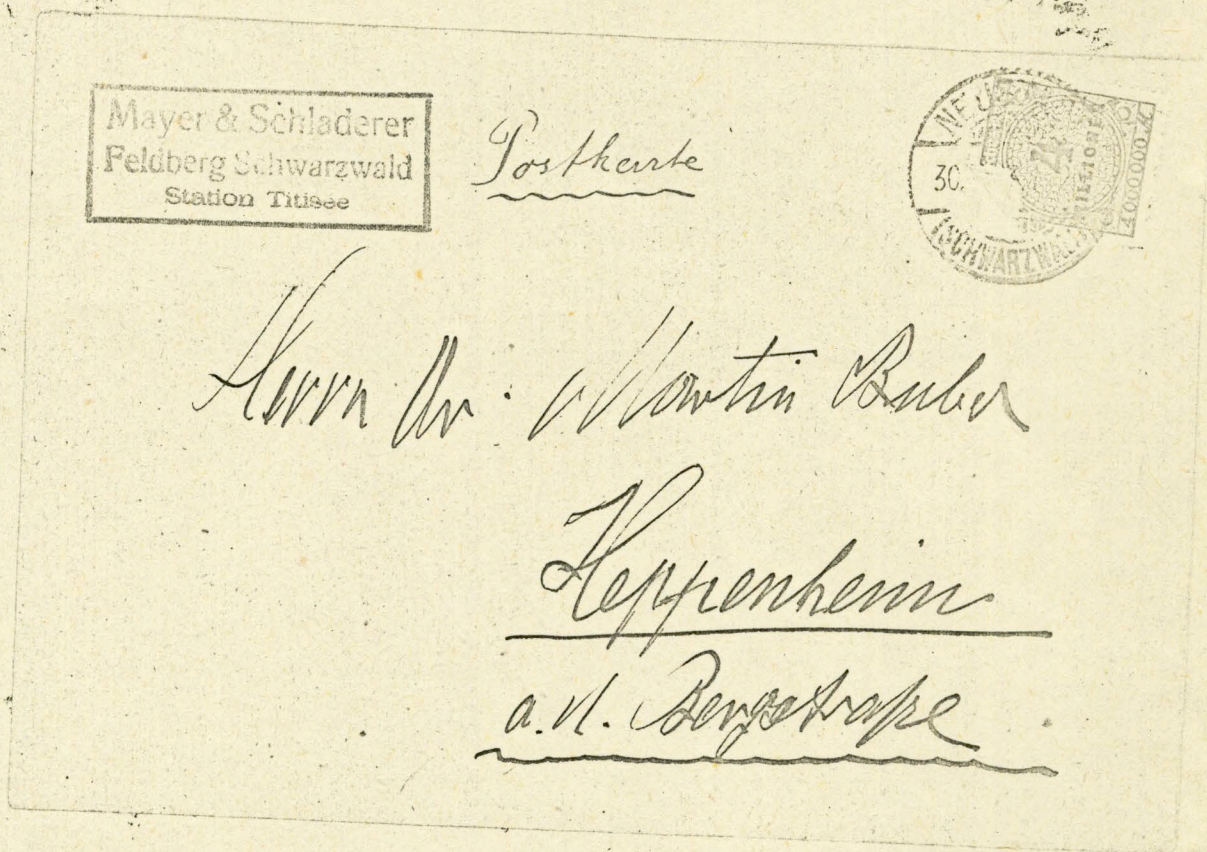 Mayer & Schladerer
Feldberg Schwarzwald
Station Titisee
Postkarte
30.
(SCHWARZWALD)
4
MILLIONEN
4000000 M
Herrn Dr. Martin Buber
Heppenheim
a. d. Bergstraße